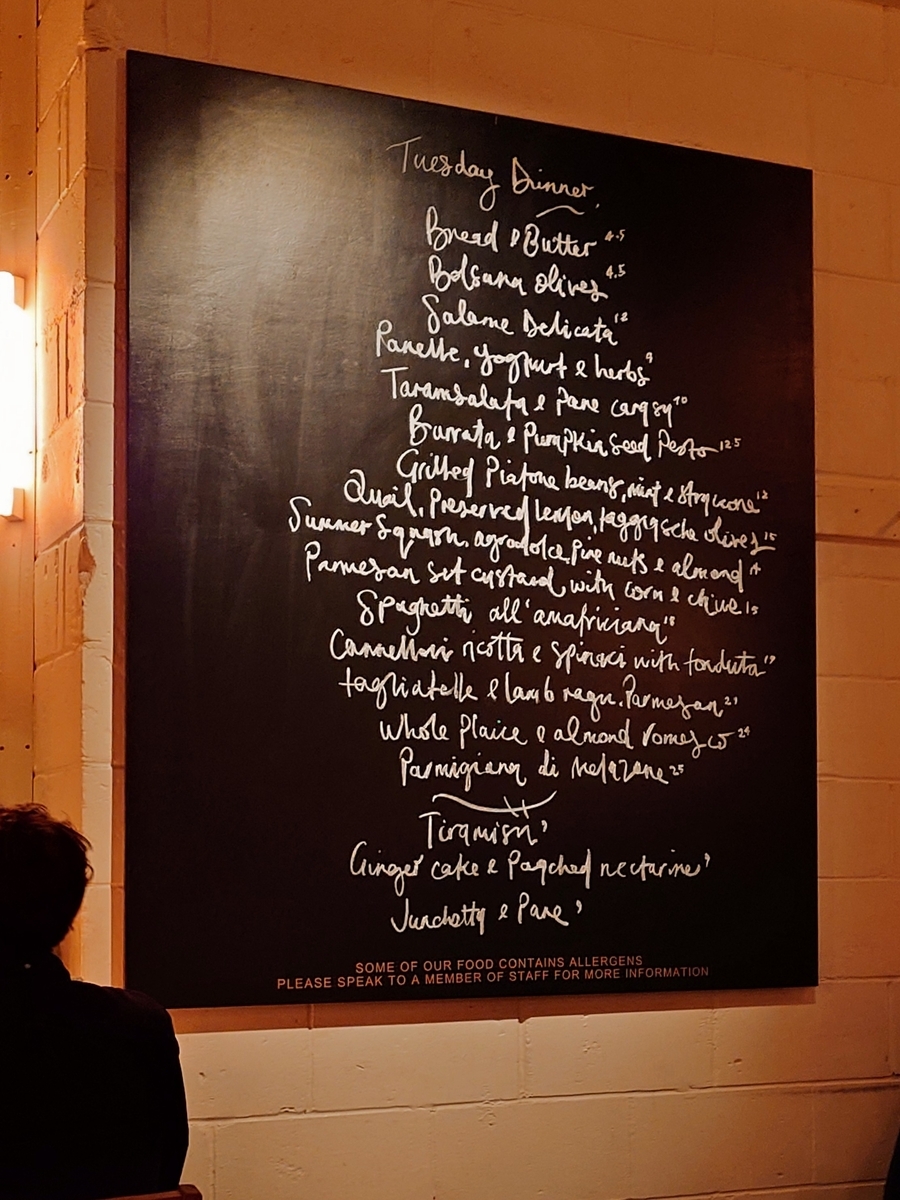 Tuesday Dinner
Bread & Butter 4.5
Bolsana olives 4.5
Salame Delicata 12
Panelle, yoghurt & herbs 9
Taramsalata & Pane carasu 10
Burrata & Pumpkin Seed Pesto 12.5
Grilled Piatone beans, mint & stracione 12
Quail, Preserved lemon, taggiasche olives 15
Summer Squash, agrodolce, Pine nuts & almond 14
Parmesan set custard, with corn & chive 15
Spaghetti all'amatriciana 18
Cannelloni ricotta & spinaci with fonduta 19
tagliatelle & lamb ragu. Parmesan 21
Whole Plaice & almond romesco 24
Parmigiana di Melazane 25
Tiramisú 9
Ginger cake & Poached nectarine 9
Junchetty & Pane 9
SOME OF OUR FOOD CONTAINS ALLERGENS
PLEASE SPEAK TO A MEMBER OF STAFF FOR MORE INFORMATION